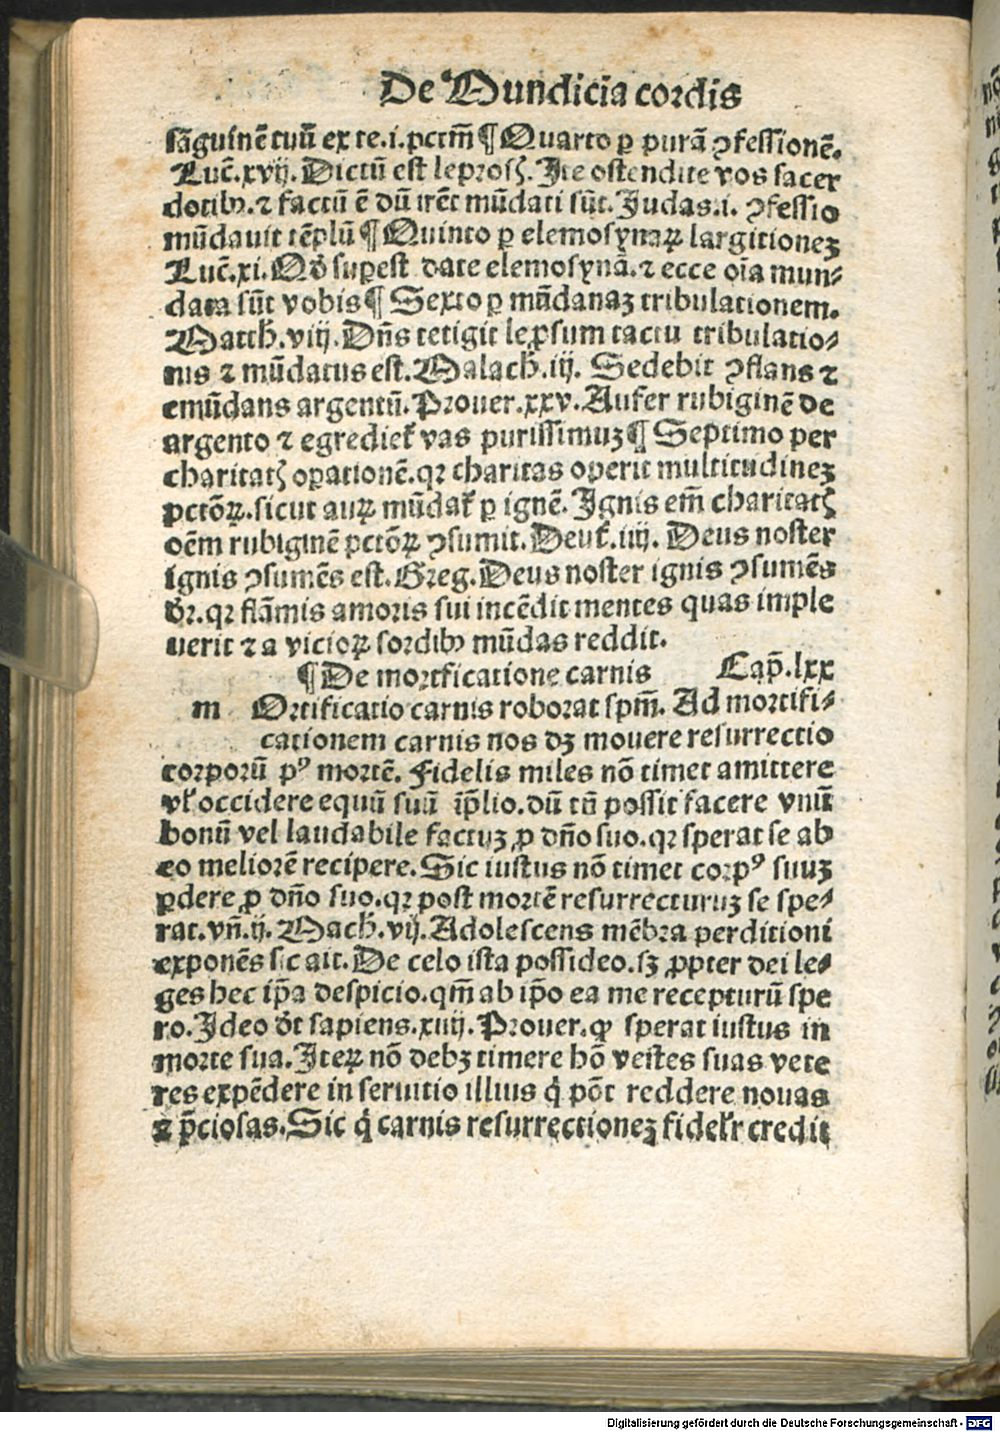 De Mundicia cordis
sāguinē tuū ex te.i.pctm̄ ¶ Quarto ꝑ purā ꝯfessionē.
Luc̄.xvij. Dictū est leprosꝭ. Ite ostendite vos sacer
dotibꝰ. ⁊ factū ē dū irēt mūdati sūt. Iudas.i. ꝯfessio
mūdauit tēplū ¶ Quinto ꝑ elemosynaꝝ largitioneꝫ
Luc̄.xi. Qd̄ suꝑest date elemosynā. ⁊ ecce oīa mun-
data sūt vobis ¶ Sexto ꝑ mūdanaꝫ tribulationem.
Matth̄.viij. Dn̄s tetigit leꝓsum tactu tribulatio-
nis ⁊ mūdatus est. Malach̄.iij. Sedebit ꝯflans ⁊
emūdans argentū. Prouer.xxv. Aufer rubiginē de
argento ⁊ egrediet̄ vas purissimuꝫ ¶ Septimo per
charitatꝭ oꝑationē. qr charitas operit multitudineꝫ
pctōꝝ. sicut auꝝ mūdat̄ ꝑ ignē. Ignis em̄ charitatꝭ
oēm rubiginē pctōꝝ ꝯsumit. Deut̄.iiij. Deus noster
ignis ꝯsumēs est. Greg. Deus noster ignis ꝯsumēs
dr̄. qr flāmis amoris sui incēdit mentes quas imple
uerit ⁊ a vicioꝝ sordibꝰ mūdas reddit.
¶ De mortficatione carnis Cap̄.lxx
m Ortificatio carnis roborat spm̄. Ad mortifi-
cationem carnis nos dꝫ mouere resurrectio
corporū pꝰ mortē. Fidelis miles nō timet amittere
vl̄ occidere equū suū īp̄lio. dū tn̄ possit facere vnū
bonū vel laudabile factuꝫ ꝓ dn̄o suo. qr sperat se ab
eo meliorē recipere. Sic iustus nō timet corpꝰ suuꝫ
ꝑdere ꝓ dn̄o suo. qr post mortē resurrecturuꝫ se spe-
rat. vn̄.ij. Mach̄.vij. Adolescens mēbra perditioni
exponēs sic ait. De celo ista possideo. sꝫ ꝓpter dei le-
ges hec ip̄a despicio. qm̄ ab ip̄o ea me recepturū spe
ro. Ideo dt̄ sapiens.xiiij. Prouer. ꝙ sperat iustus in
morte sua. Iteꝝ nō debꝫ timere hō vestes suas vete
res expēdere in seruitio illius q̄ pōt reddere nouas
⁊ p̄ciosas. Sic q̄ carnis resurrectioneꝫ fidel̄r credit
Digitalisierung gefördert durch die Deutsche Forschungsgemeinschaft - DFG